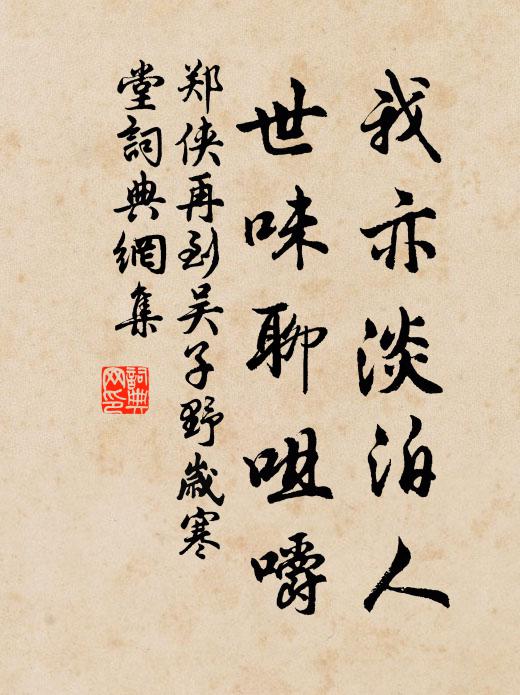 我亦淡泊人
世味聊咀嚼
郑侠再到吴子野岁寒
堂詞典網集
詞典网印